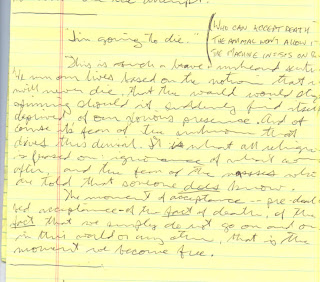 "I'm going to die."
(WHO CAN ACCEPT DEATH
THE ANIMAL WON'T ALLOW IT
THE MACHINE INSISTS ON
This is such a
We run our lives based on the notion that
will never die, that the world would stop
spinning should it suddenly find itself
deprived of our glorious presence. And of
course its fear of the unknown that
drives this denial. It is what all religion
is based on: ignorance of what
after, and the fear of the
are told that someone does know.
The moment of acceptance -- pre-death
acceptance of the fact of death, of the
fact that we simply do not go on and on
in this world or any other, that is the
moment we become free.